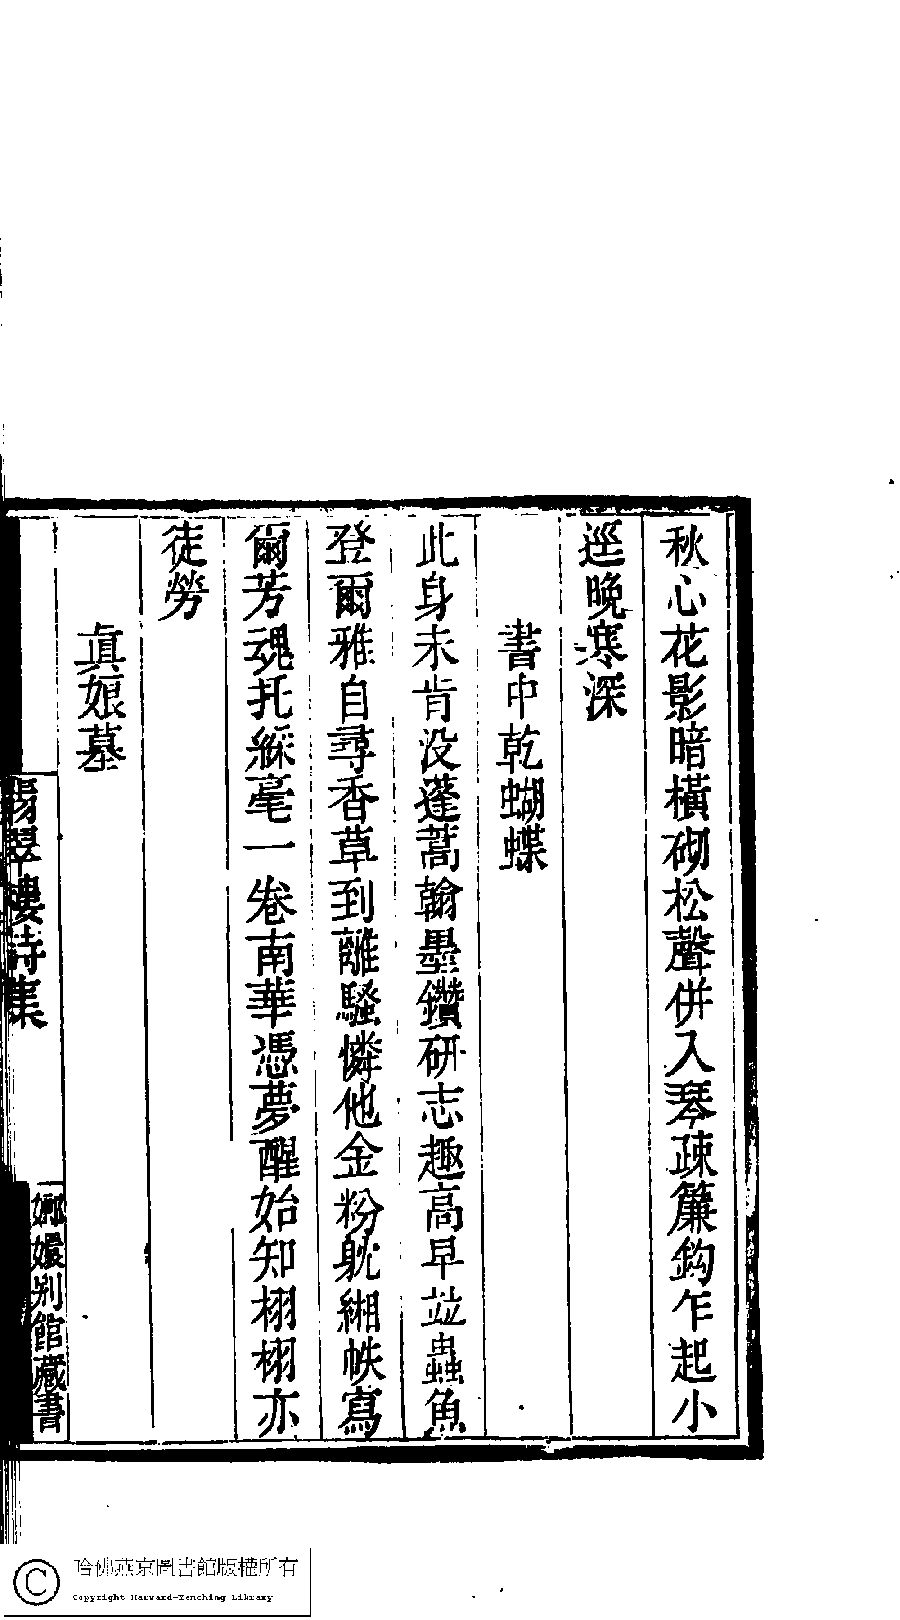 秋心花影暗橫砌松聲併入琴疎簾鈎乍起小
逕晚寒深
書中乾蝴蝶
此身未肯没蓬蒿翰墨鑽研志趣高早竝蟲魚
登爾雅自尋香草到離騷憐他金粉躭緗帙寫
爾芳魂托綵毫一卷南華憑夢醒始知栩栩亦
徒勞
眞娘墓
翡翠樓詩集
嫏嬛别館藏書
哈佛燕京圖書館版權所有
Copyright Harvard-Yenching Library